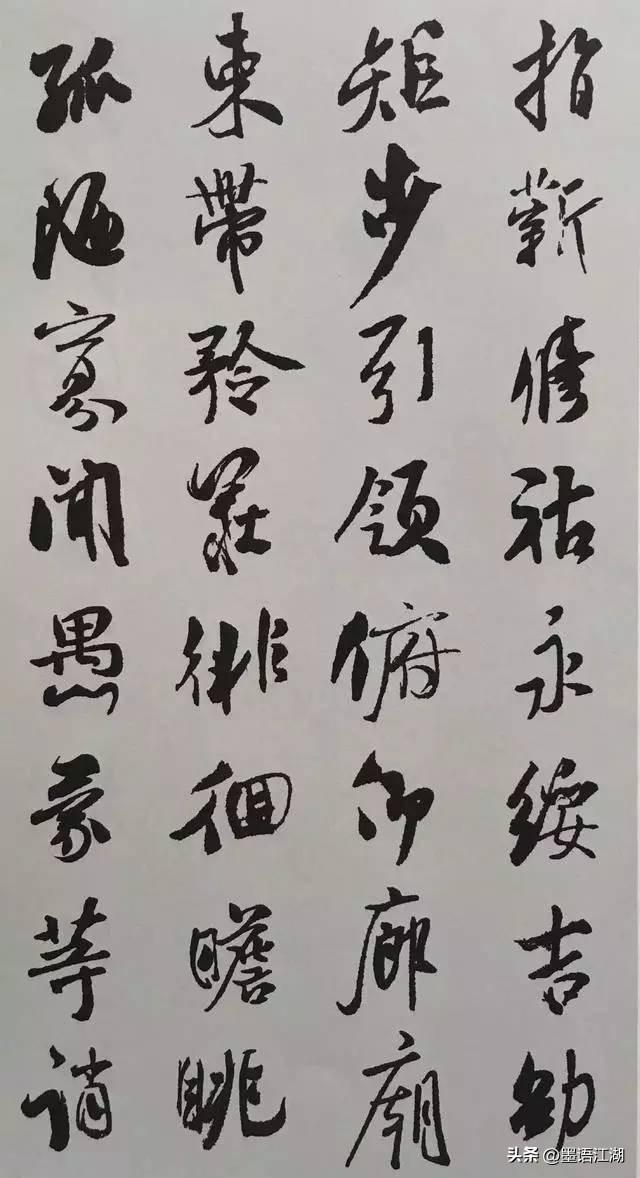 指薪脩祜永綏吉劭
矩步引領俯仰廊廟
束帶矜莊徘徊瞻眺
孤陋寡聞愚蒙等誚
头条 @墨语江湖